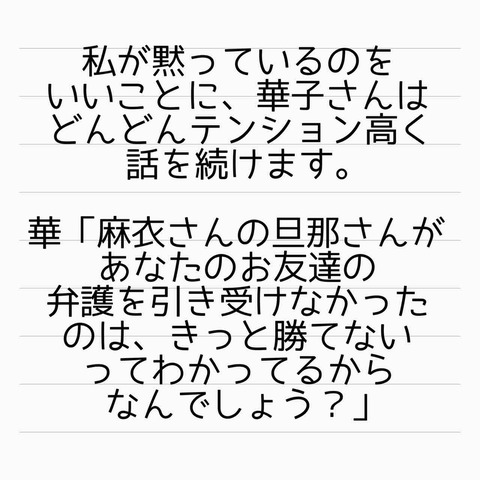 私が黙っているのを
いいことに、華子さんは
どんどんテンション高く
話を続けます。
華「麻衣さんの旦那さんが
あなたのお友達の
弁護を引き受けなかった
のは、きっと勝てない
ってわかってるから
なんでしょう？」